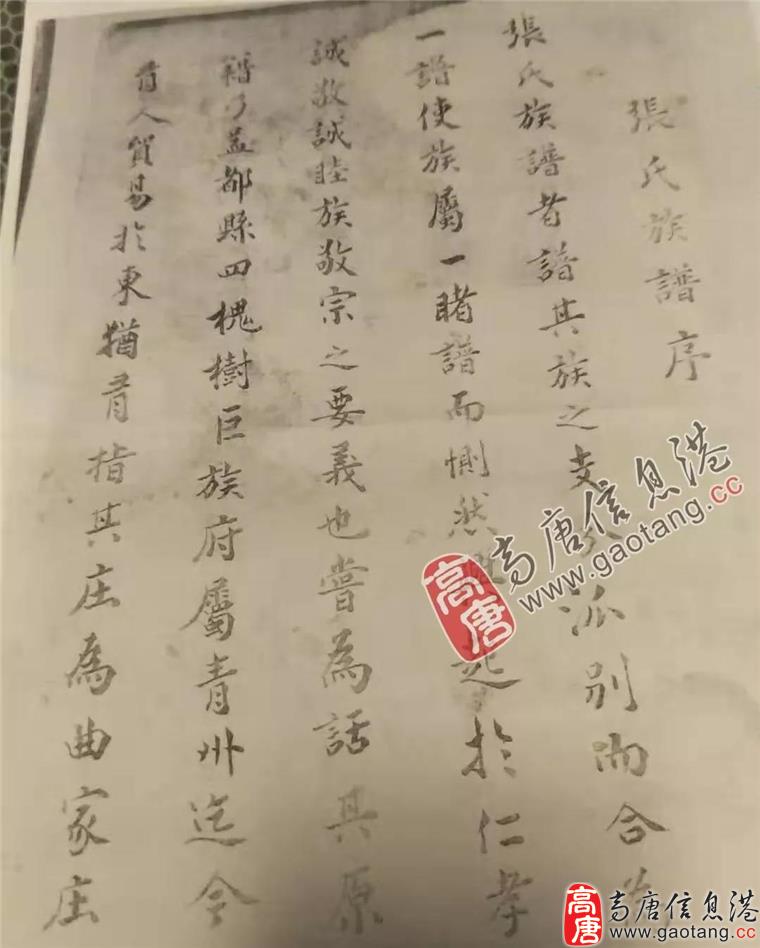 張氏族譜序
張氏族譜者譜其族之支分派別而合為
一譜使族屬一睹譜而惻然興起於仁孝
誠敬誠睦族敬宗之要義也嘗為話其原
籍乃益都縣四槐樹巨族府屬青州迄今
有人貿易於東猶有指其庄為曲家庄
高唐
高唐信息港
www.gaotang.cc
高唐
高唐信息港
www.gaotang.cc